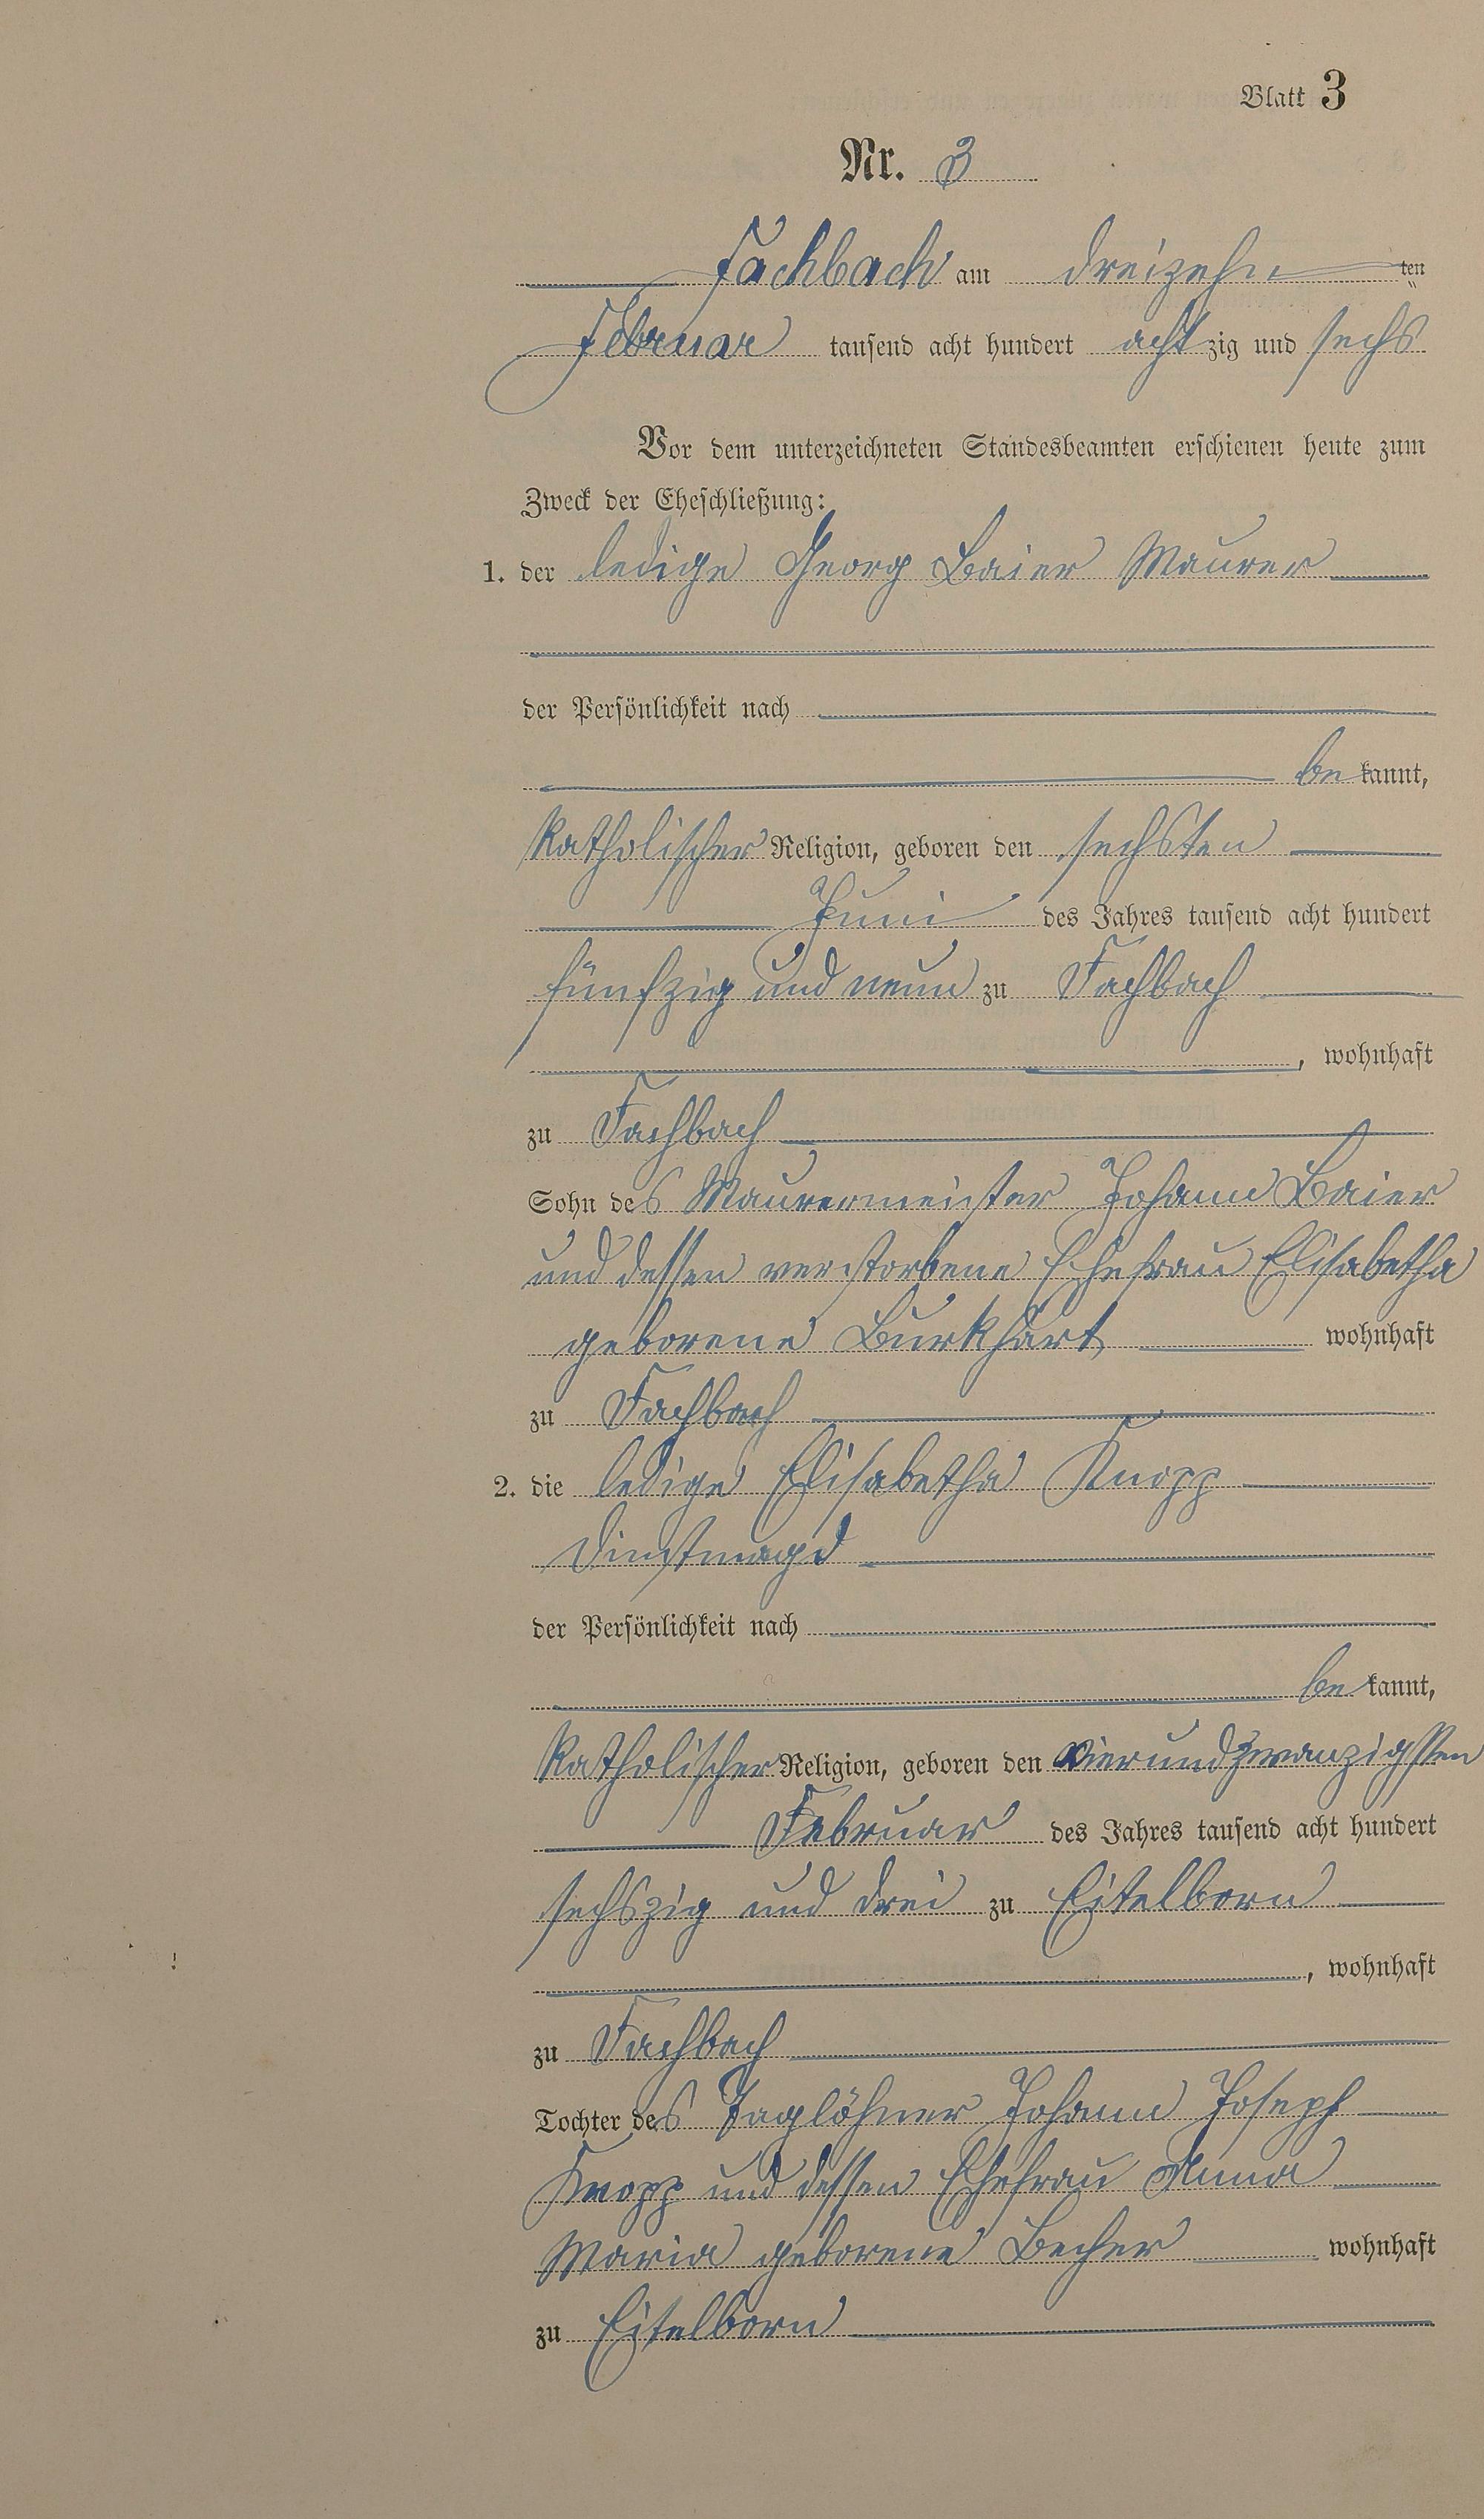 Blatt 3
Nr. 3
Fachbach am dreizehn ten
Februar tausend acht hundert achtzig und sechs
Vor dem unterzeichneten Standesbeamten erschienen heute zum
Zweck der Eheschließung:
1. der ledige Georg Baier Maurer
der Persönlichkeit nach
be kannt,
Katholischer Religion, geboren den sechsten
Juni des Jahres tausend acht hundert
fünfzig und neun zu Fachbach
, wohnhaft
zu Fachbach
Sohn des Maurermeister Johann Baier
und dessen verstorbene Ehefrau Elisabetha
geborene Burkhart wohnhaft
zu Fachbach
2. die ledige Elisabetha Knopp
Dienstmagd
der Persönlichkeit nach
be kannt,
Katholischer Religion, geboren den vierundzwanzigsten
Februar des Jahres tausend acht hundert
sechszig und drei zu Eitelborn
, wohnhaft
zu Fachbach
Tochter des Taglöhner Johann Joseph
Knopp und dessen Ehefrau Anna
Maria geborene Becher wohnhaft
zu Eitelborn